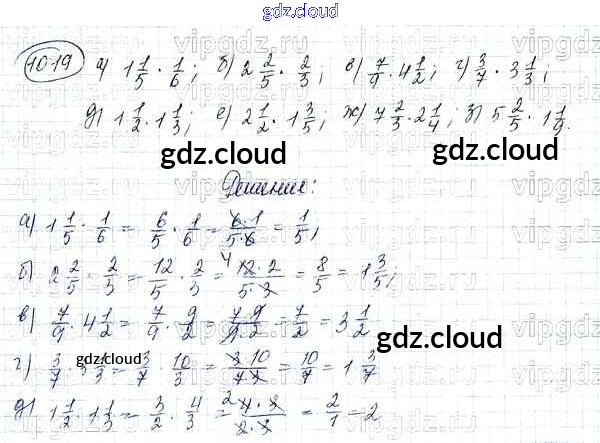 gdz.cloud
10.19 а) 1 1/5 · 1/6; б) 2 2/5 · 2/3; в) 7/9 · 4 1/2; г) 3/7 · 3 1/3;
д) 1 1/2 · 1 1/3; е) 2 1/2 · 1 3/5; ж) 7 2/3 · 2 1/4; з) 5 2/5 · 1 1/9.
gdz.cloud gdz.cloud
Решение:
а) 1 1/5 · 1/6 = 6/5 · 1/6 = 6·1/5·6 = 1/5;
б) 2 2/5 · 2/3 = 12/5 · 2/3 = 4 12·2/5·3 = 8/5 = 1 3/5;
в) 7/9 · 4 1/2 = 7/9 · 9/2 = 7·9/9·2 = 7/2 = 3 1/2
gdz.cloud
г) 3/7 · 3 1/3 = 3/7 · 10/3 = 3·10/7·3 = 10/7 = 1 3/7
gdz.cloud
д) 1 1/2 · 1 1/3 = 3/2 · 4/3 = 2 4·3/2·3 = 2/1 = 2
gdz.cloud